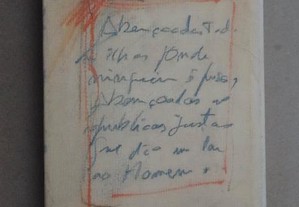 Abençoadas
ilhas onde
ninguém é preso,
Abençoadas as
repúblicas justas
que dão um lar
ao Homem.